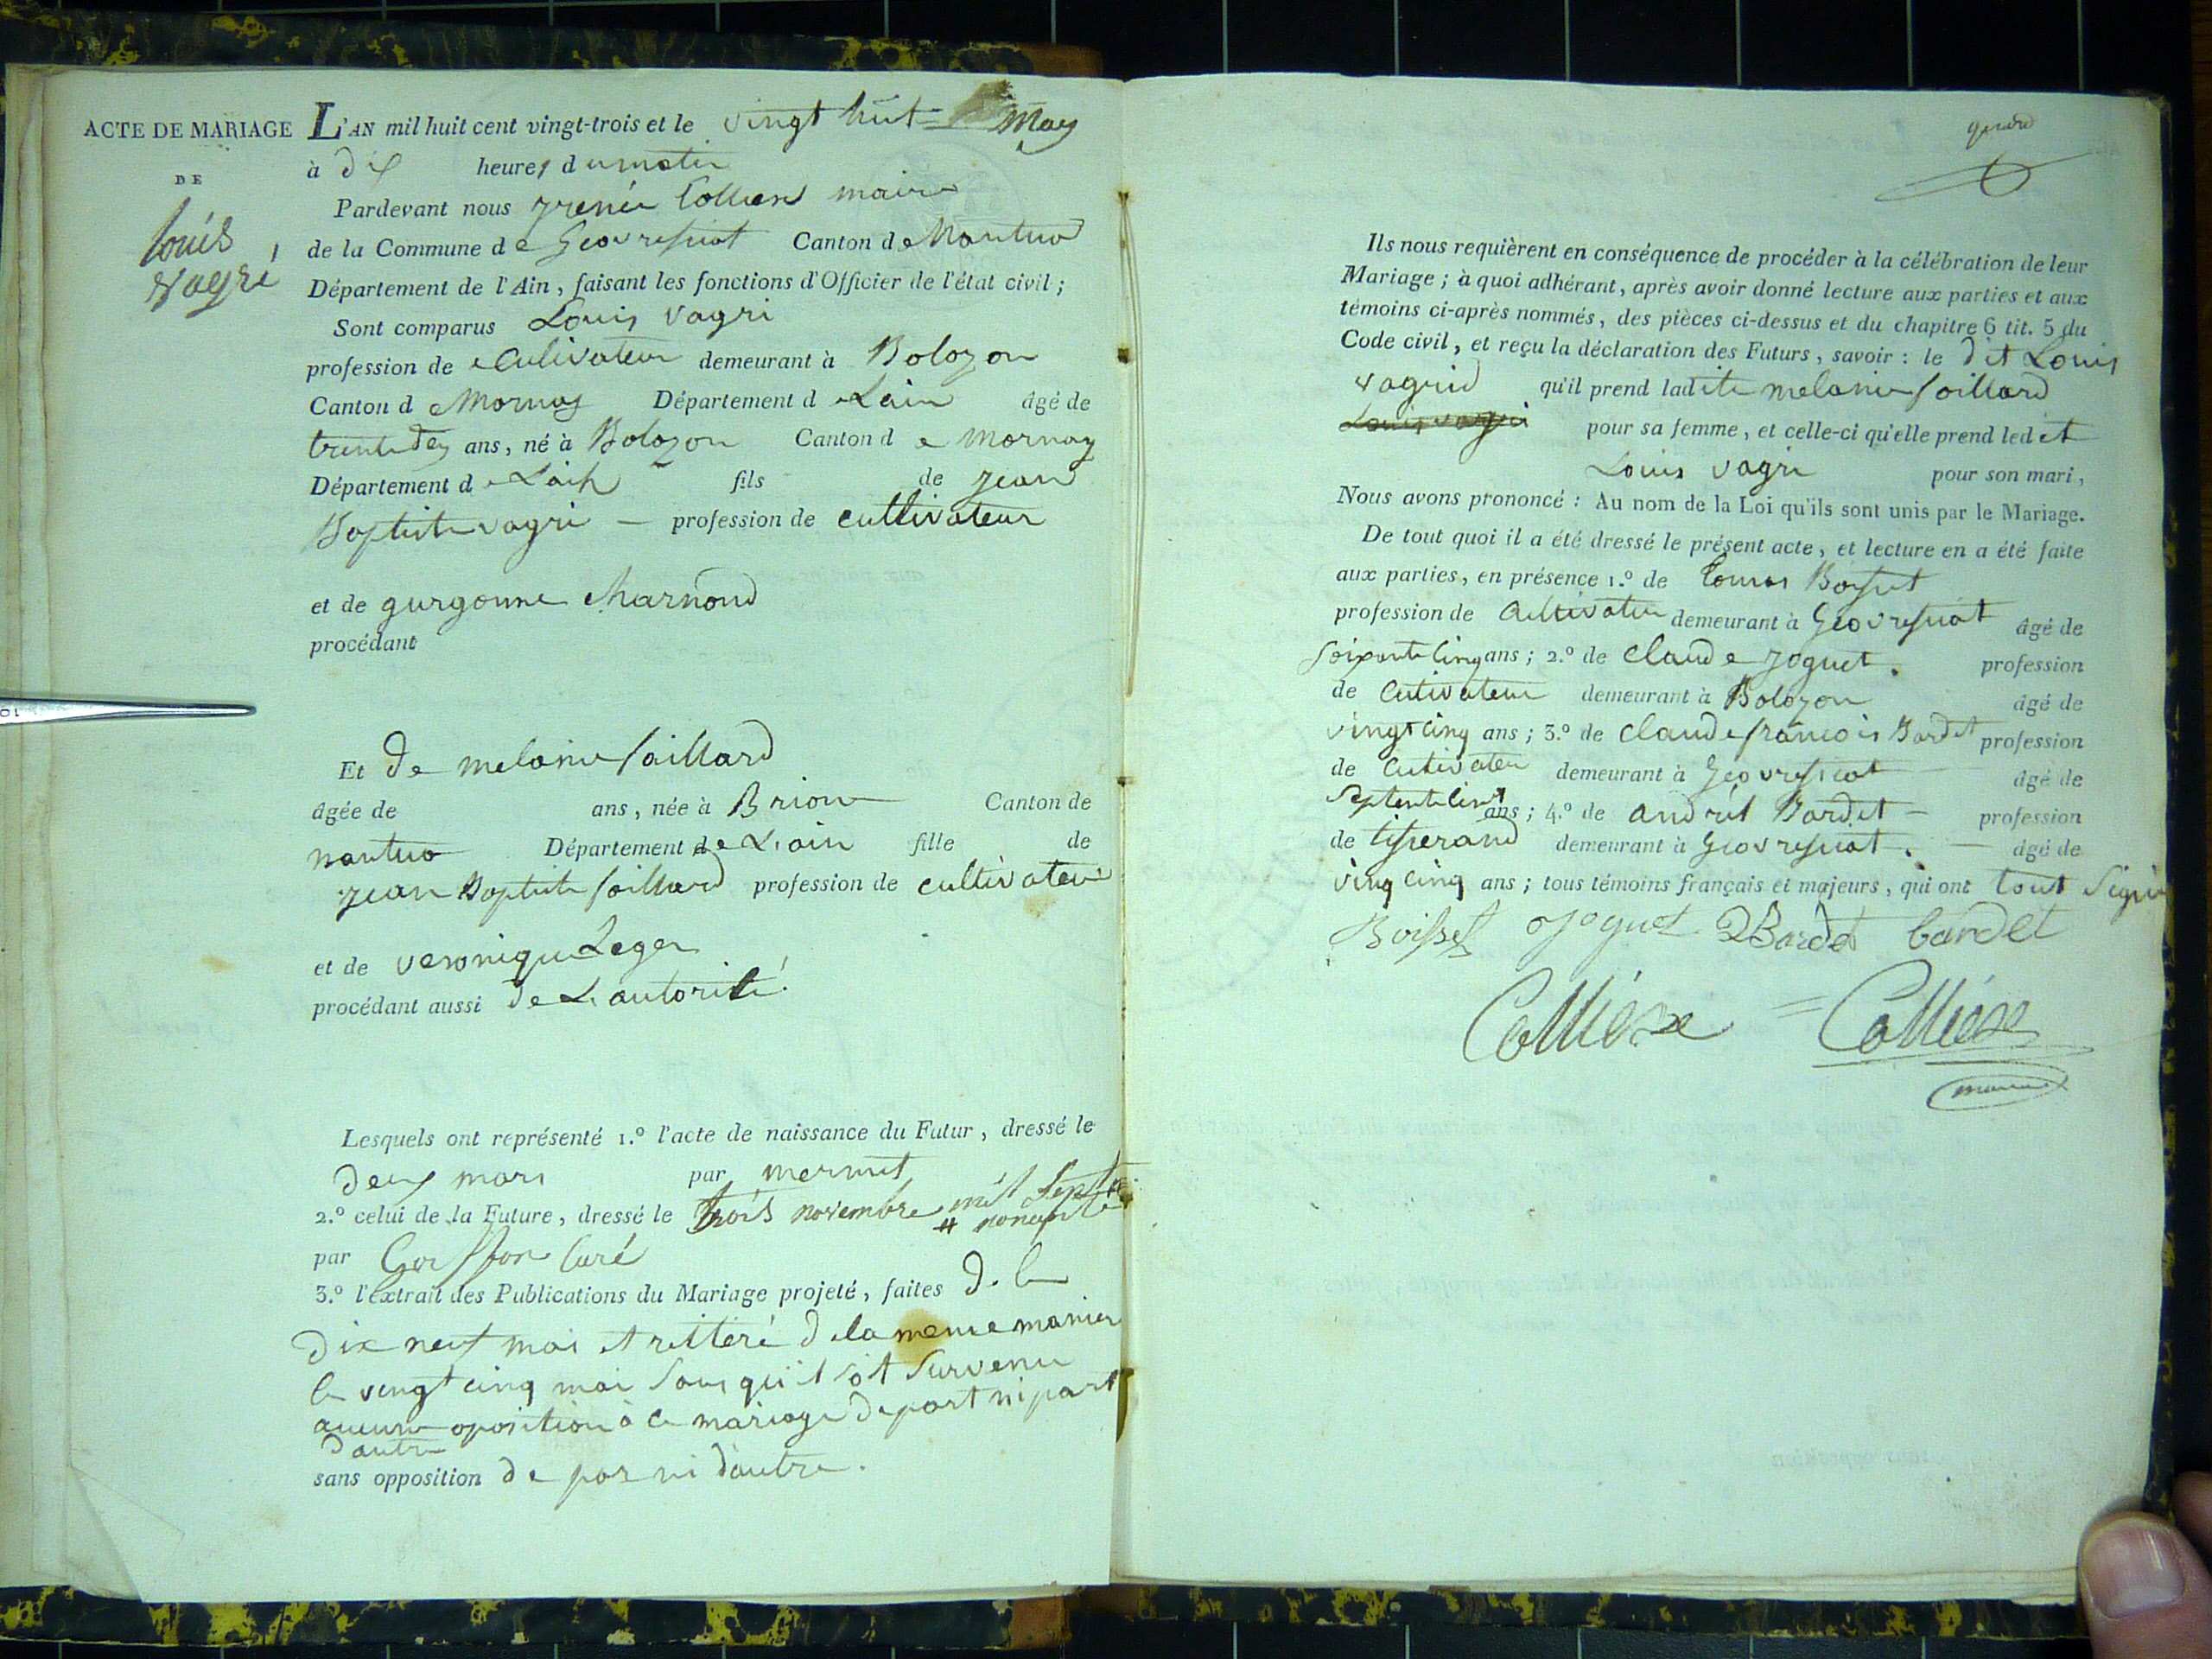 ACTE DE MARIAGE
DE
louis
vagri
L'AN mil huit cent vingt-trois et le vingt huit May
à dix heures du matin
Pardevant nous irénée Collien maire
de la Commune de Geovressiat Canton de Nantua
Département de l'Ain, faisant les fonctions d'Officier de l'état civil;
Sont comparus Louis vagri
profession de Culivateur demeurant à Bolozon
Canton de Mornay Département de Lain âgé de
trente dex ans, né à Bolozon Canton de mornay
Département de Lain fils de jean
Baptiste vagri — profession de cultivateur
et de gurgonne charnond
procédant
Et de melanie saillard
âgée de ans, née à Brion Canton de
nantua Département de L'ain fille de
jean Baptiste saillard profession de cultivateur
et de veronique Leger
procédant aussi de L'autorité
Lesquels ont représenté 1.º l'acte de naissance du Futur, dressé le
deux mars par mermet
2.º celui de la Future, dressé le trois novembre mil sept
# nonente
par curé
3.º l'extrait des Publications du Mariage projeté, faites de le
dix neuf mai et reiteré de la meme manier
le vingt cinq mai sans qu'il soit survenu
aucune oposition à ce mariage de part ni part
dautre
sans opposition de par ni d'autre.
Ils nous requièrent en conséquence de procéder à la célébration de leur
Mariage; à quoi adhérant, après avoir donné lecture aux parties et aux
témoins ci-après nommés, des pièces ci-dessus et du chapitre 6 tit. 5 du
Code civil, et reçu la déclaration des Futurs, savoir: le dit Louis
vagrid qu'il prend ladite melanie saillard
Louis vagri pour sa femme, et celle-ci qu'elle prend ledit
Louis vagri pour son mari,
Nous avons prononcé: Au nom de la Loi qu'ils sont unis par le Mariage.
De tout quoi il a été dressé le présent acte, et lecture en a été faite
aux parties, en présence 1.º de Boisset
profession de Cultivateur demeurant à Geovressiat âgé de
soixante cinq ans; 2.º de claude joguet. profession
de Cutivateur demeurant à Bolozon âgé de
vingt cinq ans; 3.º de claude francois Bardet profession
de Cutivateur demeurant à Geovressiat — âgé de
ans; 4.º de andrét Bardet — profession
de tisserand demeurant à Geovressiat. — âgé de
ving cinq ans; tous témoins français et majeurs, qui ont tout signé
Boisset joguet Bardet bardet
Collière = Collière
maire